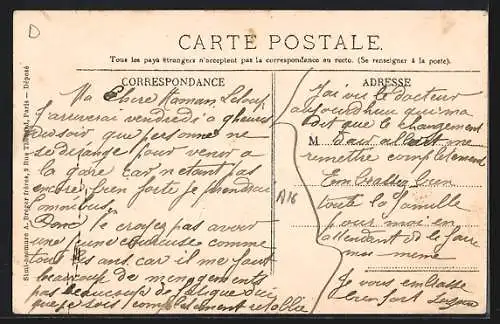 D
CARTE POSTALE.
Tous les pays étrangers n'acceptent pas la correspondance au recto. (Se renseigner à la poste).
CORRESPONDANCE
Ma Chere Maman
J'arriverai vendredi a 9 heures
du soir que personne ne
se dérange pour venir a
la gare car n'etant pas
encore bien forte je prendrai
l'omnibus
Donc ne croyez pas avoir
une jeune comme
tout les ans car il me faut
beaucoup de menagements
pas beaucoup de fatigue
que je sois completement retablie
A16
ADRESSE
J'ai vu le docteur
aujourdhui qui m'a
dit que le changement
M dair allait me
remettre completement
Embrassez bien
toute la famille
pour moi en
attendant de le faire
moi meme
Je vous embrasse
bien fort
Simili-commune A. Breger Frères, 9 Rue Paris — Déposé